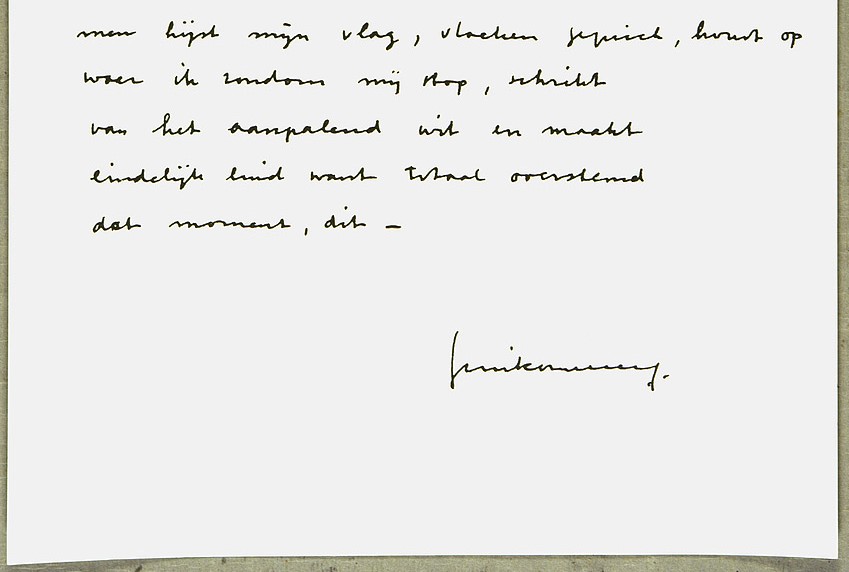 men hijst mijn vlag, vlaeken gepiich, houdt op
waar ik rondom mij stop, schrikt
van het aanpalend wit en maakt
eindelijk luid want totaal overstemd
dat moment, dit –